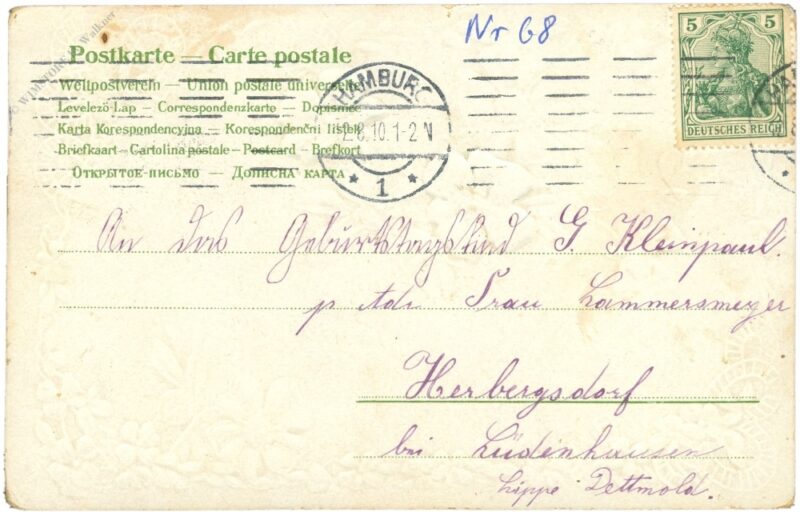 © WIMSTORE J. Walkner
Nr 68
Postkarte — Carte postale
Weltpostverein — Union postale universelle
Levelező-Lap — Correspondenzkarte — Dopisnice
Karta Korespondencyjna — Korespondenční listek
Briefkaart — Cartolina postale — Postcard — Brefkort
Открытое письмо — Дописна карта
HAMBURG
2.8.10.1-2 N
* 1 *
5 5
DEUTSCHES REICH
An das Geburtstagskind G. Kleinpaul.
p Adr Frau Lammersmeyer
Herbergsdorf
bei Lüdenhausen
Lippe Dettmold.